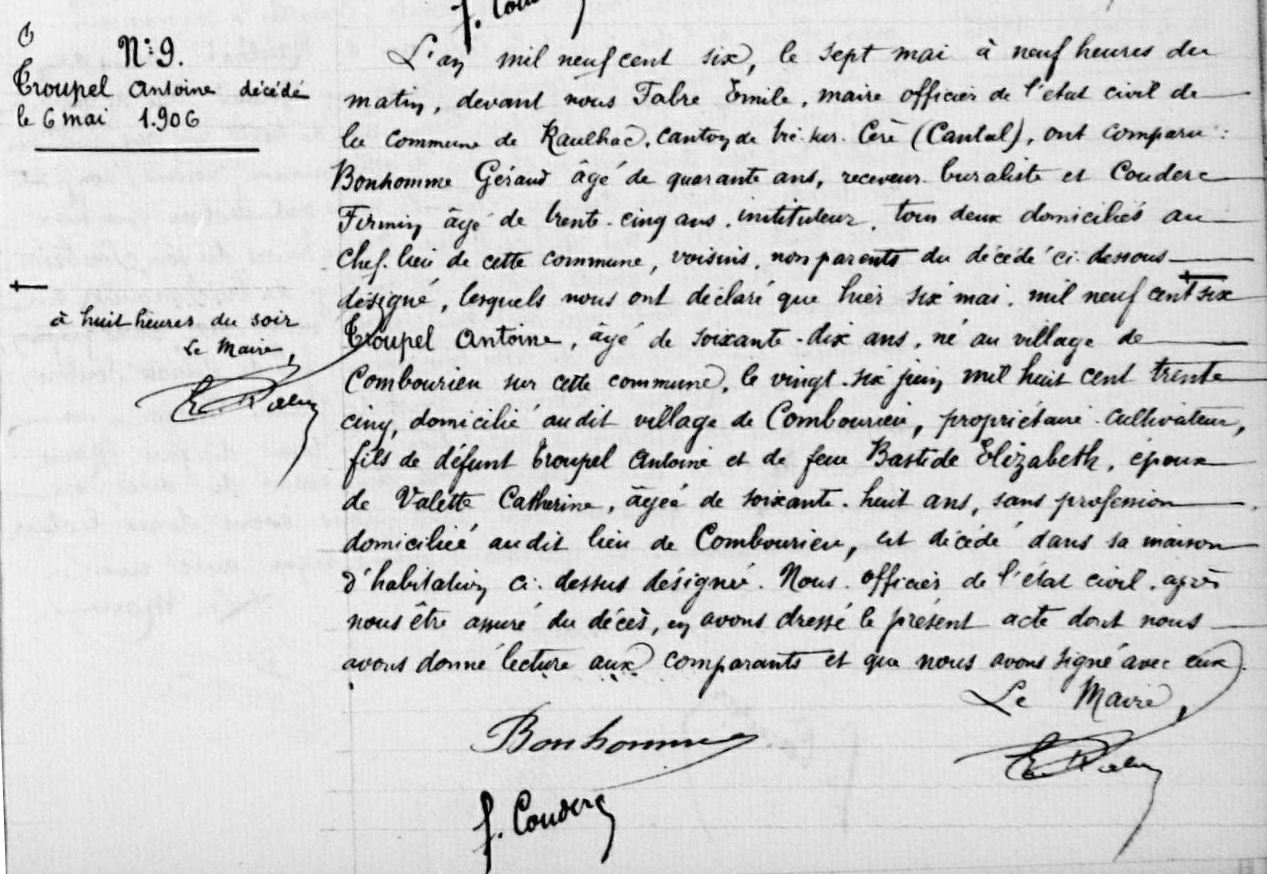 f. Couderc
N: 9.
Troupel Antoine décédé
le 6 mai 1.906
à huit heures du soir
Le Maire,
Em. Fabre
L'an mil neuf cent six, le sept mai à neuf heures du
matin, devant nous Fabre Emile, maire officier de l'état civil de
la commune de Raulhac, canton de Vic-sur-Cère (Cantal), ont comparu:
Bonhomme Géraud âgé de quarante ans, receveur buraliste et Couderc
Firmin âgé de trente-cinq ans, instituteur, tous deux domiciliés au
chef-lieu de cette commune, voisins, non parents du décédé ci-dessous
désigné, lesquels nous ont déclaré que hier six mai, mil neuf cent six
Troupel Antoine, âgé de soixante-dix ans, né au village de
Combourieu sur cette commune, le vingt-six juin mil huit cent trente
cinq, domicilié audit village de Combourieu, propriétaire-cultivateur,
fils de défunt Troupel Antoine et de feue Bastide Elizabeth, époux
de Valette Catherine, âgée de soixante-huit ans, sans profession
domiciliée audit lieu de Combourieu, est décédé dans sa maison
d'habitation ci-dessus désignée. Nous officier de l'état civil, après
nous être assuré du décès, en avons dressé le présent acte dont nous
avons donné lecture aux comparants et que nous avons signé avec eux.
Le Maire,
Bonhomme
Em. Fabre
f. Couderc